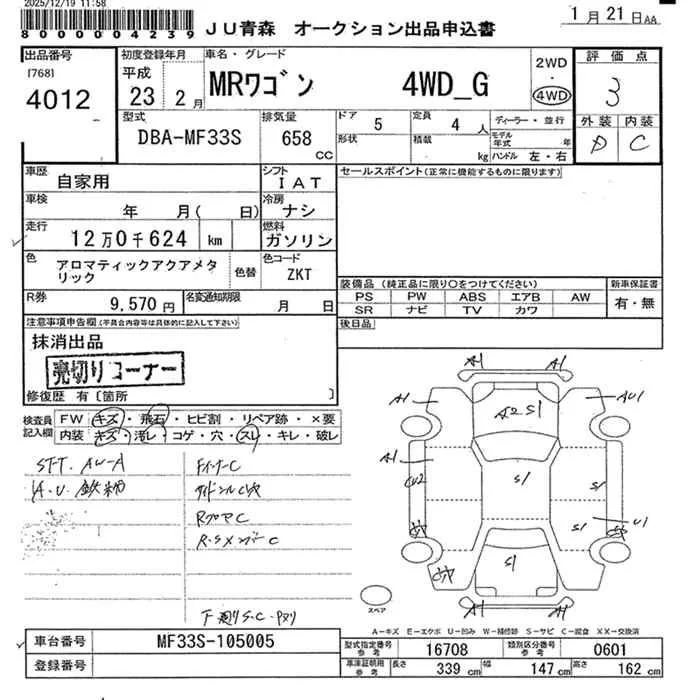 2025/12/19 11:58
8000004239
JU青森 オークション出品申込書
1月21日AA
出品番号
[768]
4012
初度登録年月
平成
23 2月
車名・グレード
MRワゴン 4WD_G
2WD
・
4WD
評価点
3
外装 内装
D C
型式
DBA-MF33S
排気量
658
CC
ドア 5
定員 4人
形状
積載 kg
ディーラー・並行
モデル年式 年
ハンドル 左・右
車歴
自家用
シフト
IAT
セールスポイント(正常に機能するものに限ります)
車検
年 月( 日)
冷房
ナシ
走行
12万0千624 km
燃料
ガソリン
色
アロマティックアクアメタリック
色替
色コード
ZKT
装備品(純正品に限り○をつけてください)
PS PW ABS エアB AW
SR ナビ TV カワ
新車保証書
有・無
R券
9,570円
名変通知期限
月 日
後日品
注意事項申告欄(不具合内容等は具体的に記入して下さい)
抹消出品
売切りコーナー
修復歴 有〔箇所 〕
検査員記入欄
FW キズ・飛石・ヒビ割・リペア跡・×要
内装 キズ・汚レ・コゲ・穴・スレ・キレ・破レ
STT. AW-A
A.U 鉄粉
FインナーC
RロアC
下廻りS.C.Pヌリ
A1 A1
A1 A2 S1 AU1
A1 S1 S1
CU2 S1 U1
S1
A1 A1
スペア
A-キズ E-エクボ U-凹み W-補修跡 S-サビ C-腐食 XX-交換済
車台番号
MF33S-105005
登録番号
型式指定番号 参考
16708
類別区分番号 参考
0601
車庫証明用 参考
長さ 339 cm 幅 147 cm 高さ 162 cm